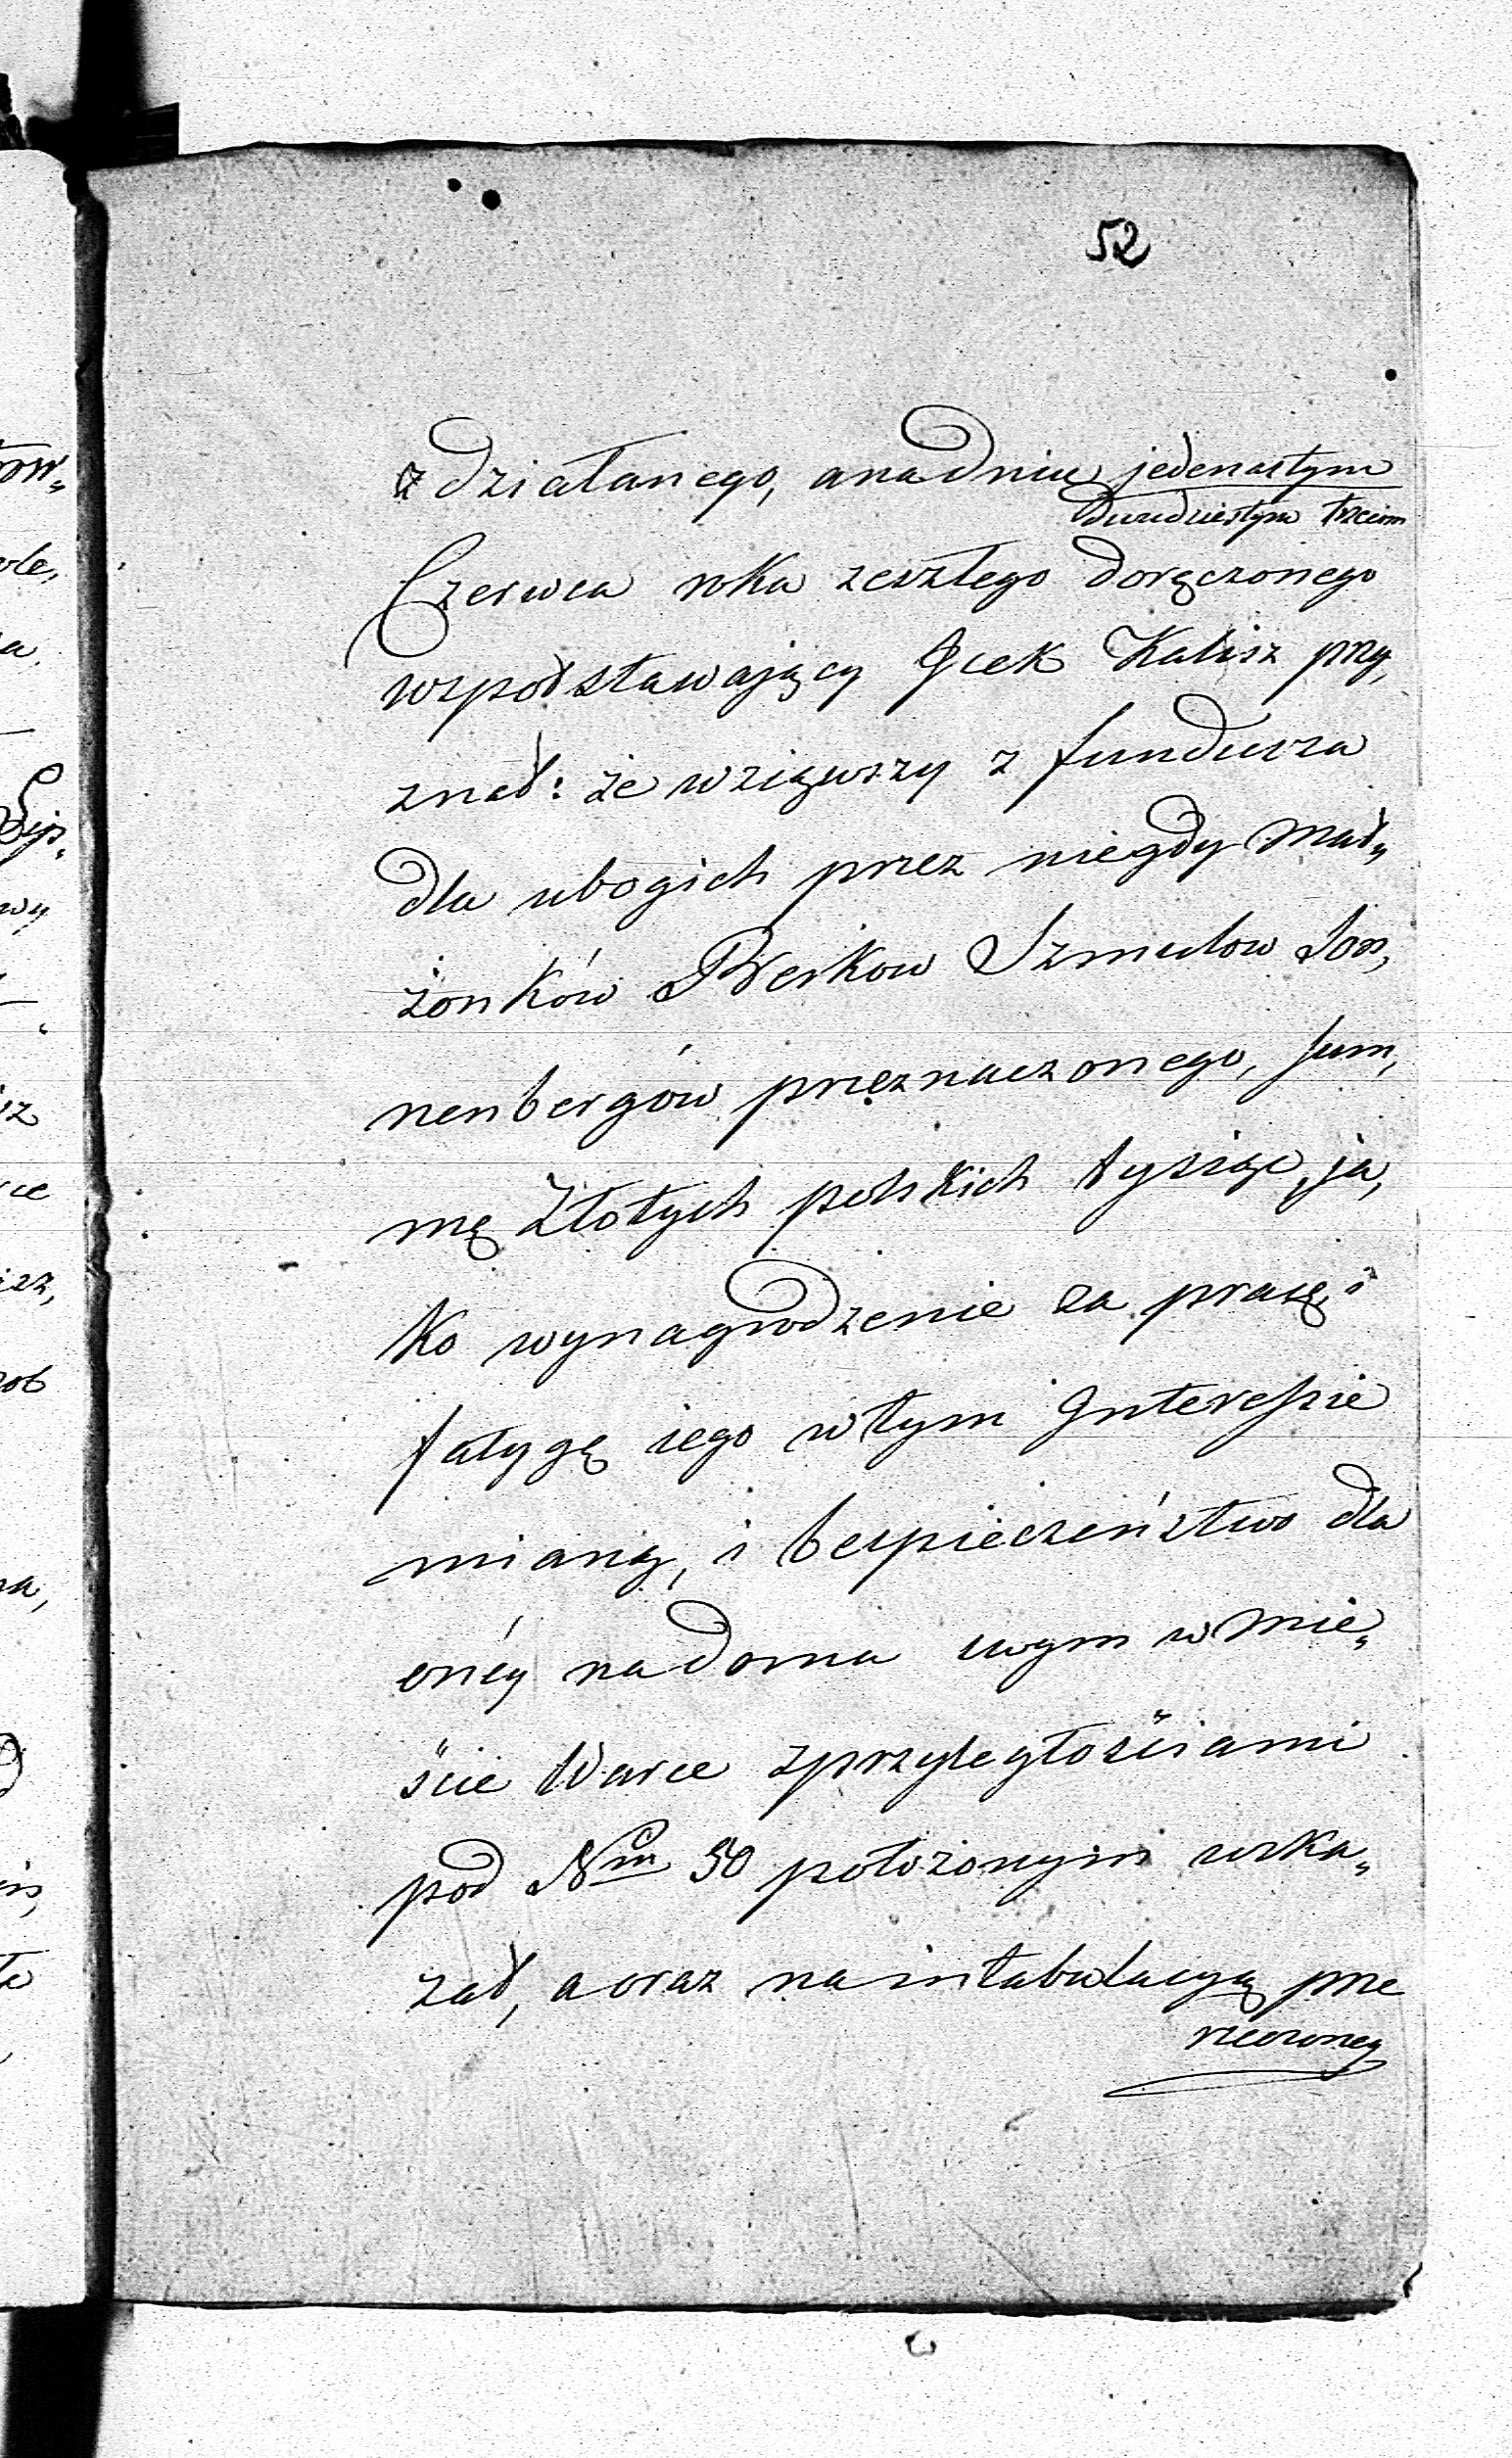 52
zdziałanego, a na dniu jedenastym
dwudziestym trzecim
Czerwca roku zeszłego doręczonego
współstawający Icek Kalisz przy„
znał: że wziąwszy z funduszu
dla ubogich przez niegdy Mał„
żonków Berkow Szmulow Son„
nenbergów przeznaczonego, sum„
mę Złotych polskich tysiąc, ja„
ko wynagrodzenie za pracę i
fatygę iego w tym Interessie
mianą, i bespieczeństwo dla
onéy na domu swym w Mie„
ście Warce z przyległościami
pod Nrm 50 położonym wska„
zał, a oraz na intabulacyą prze
rzeczoney